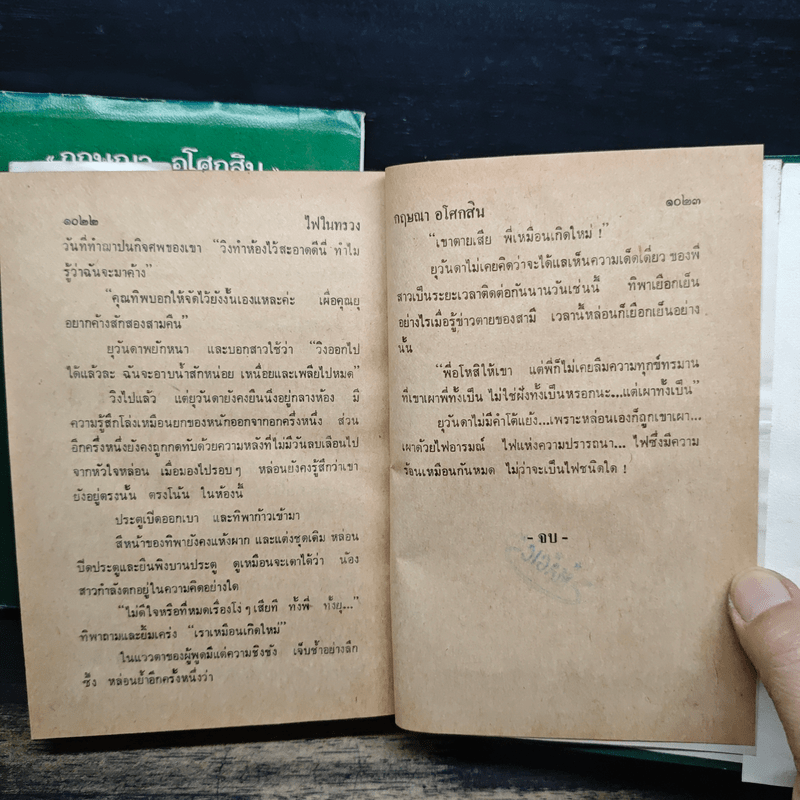 « กฤษณา อโศกสิน »
๑๐๒๒ ไฟในทรวง
วันที่ทำฌาปนกิจศพของเขา “วิงทำห้องไว้สะอาดดีนี่ ทำไม
รู้ว่าฉันจะมาค้าง”
“คุณทิพบอกให้จัดไว้ยังงั้นเองแหละค่ะ เผื่อคุณยุ
อยากค้างสักสองสามคืน”
ยุวันดาพยักหนา และบอกสาวใช้ว่า “วิงออกไป
ได้แล้วละ ฉันจะอาบน้ำสักหน่อย เหนื่อยและเพลียไปหมด”
วิงไปแล้ว แต่ยุวันดายังคงยืนนิ่งอยู่กลางห้อง มี
ความรู้สึกโล่งเหมือนยกของหนักออกจากอกครึ่งหนึ่ง ส่วน
อีกครึ่งหนึ่งยังคงถูกกดทับด้วยความหลังที่ไม่มีวันลบเลือนไป
จากหัวใจหล่อน เมื่อมองไปรอบๆ หล่อนยังคงรู้สึกว่าเขา
ยังอยู่ตรงนั้น ตรงโน้น ในห้องนี้
ประตูเปิดออกเบา และทิพาก้าวเข้ามา
สีหน้าของทิพายังคงแห้งผาก และแต่งชุดเดิม หล่อน
ปิดประตูและยืนพิงบานประตู ดูเหมือนจะเดาได้ว่า น้อง
สาวกำลังตกอยู่ในความคิดอย่างใด
“ไม่ดีใจหรือที่หมดเรื่องโง่ๆ เสียที ทั้งพี่ ทั้งยุ...”
ทิพาถามและยิ้มเคร่ง “เราเหมือนเกิดใหม่”
ในแววตาของผู้พูดมีแต่ความชิงชัง เจ็บช้ำอย่างลึก
ซึ้ง หล่อนย้ำอีกครั้งหนึ่งว่า
กฤษณา อโศกสิน ๑๐๒๓
“เขาตายเสีย พี่เหมือนเกิดใหม่ !”
ยุวันดาไม่เคยคิดว่าจะได้แลเห็นความเด็ดเดี่ยว ของพี่
สาวเป็นระยะเวลาติดต่อกันนานวันเช่นนี้ ทิพาเยือกเย็น
อย่างไรเมื่อรู้ข่าวตายของสามี เวลานี้หล่อนก็เยือกเย็นอย่าง
นั้น
“พี่อโหสิให้เขา แต่พี่ก็ไม่เคยลืมความทุกข์ทรมาน
ที่เขาเผาพี่ทั้งเป็น ไม่ใช่ฝังทั้งเป็นหรอกนะ...แต่เผาทั้งเป็น”
ยุวันดาไม่มีคำโต้แย้ง...เพราะหล่อนเองก็ถูกเขาเผา...
เผาด้วยไฟอารมณ์ ไฟแห่งความปรารถนา... ไฟซึ่งมีความ
ร้อนเหมือนกันหมด ไม่ว่าจะเป็นไฟชนิดใด !
- จบ -